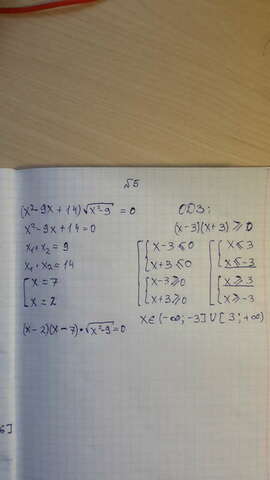 №5
(x²-9x+14)√(x²-9) = 0
x²-9x+14=0
x₁+x₂=9
x₁·x₂=14
[x=7
[x=2
(x-2)(x-7)·√(x²-9)=0
ОДЗ:
(x-3)(x+3)≥0
[{x-3≤0
[{x+3≤0
[{x-3≥0
[{x+3≥0
[{x≤3
[{x≤-3
[{x≥3
[{x≥-3
x∈(-∞;-3]∪[3;+∞)